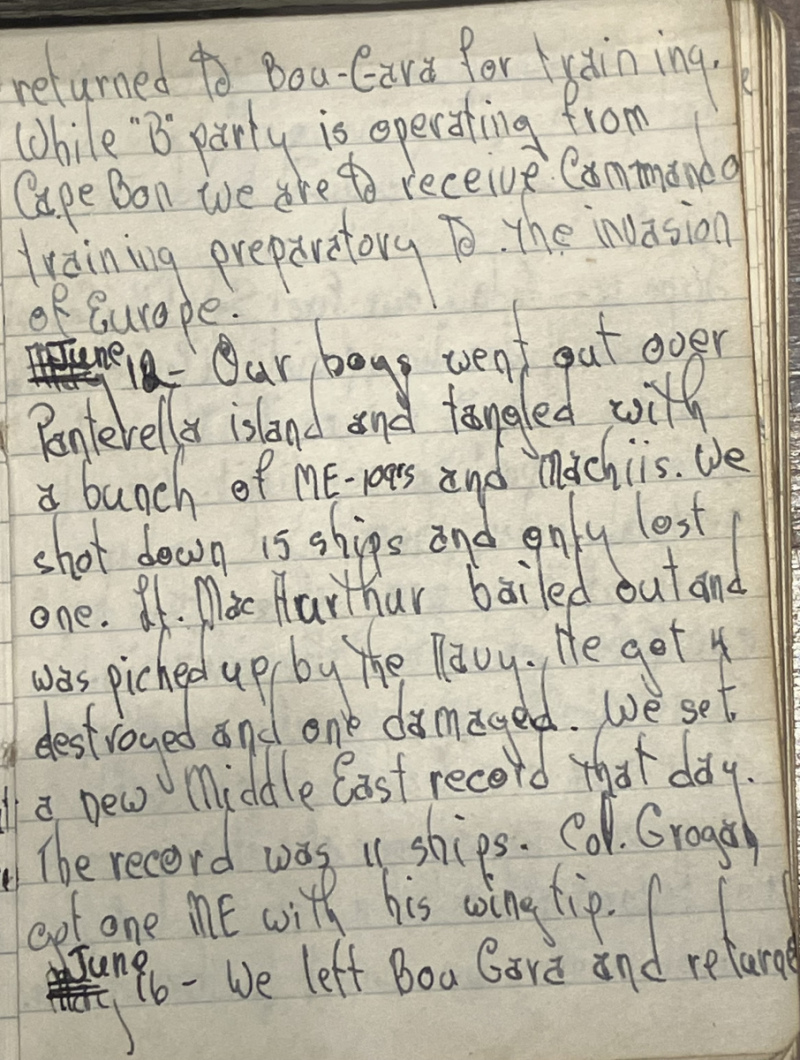 returned to Bou-Gara for training.
While "B" party is operating from
Cape Bon we are to receive Commando
training preparatory to the invasion
of Europe.
June 12- Our boys went out over
Panterella island and tangled with
a bunch of ME-109's and Machiis. We
shot down 15 ships and only lost
one. Lt. Mac Aurthur bailed out and
was piched up by the Navy. He got 4
destroyed and one damaged. We set
a new Middle East record that day.
The record was 11 ships. Col. Grogan
got one ME with his wing tip.
June 16- We left Bou Gara and